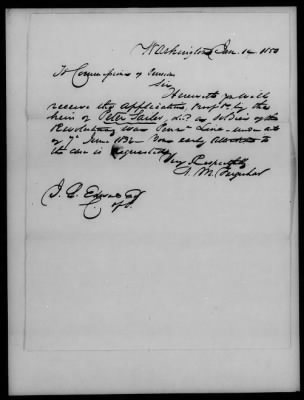 Washington Jan. 14 1850
To Commissioner of Pension
Sir
Herewith you will
receive the application &c by the
heir of Peter Sailer, decd. a soldier of the
Revolutionary War Penn Line under act
of 7th June 1832 Your early attention to
the case is requested
Very Respectfully
J. E. Edwards